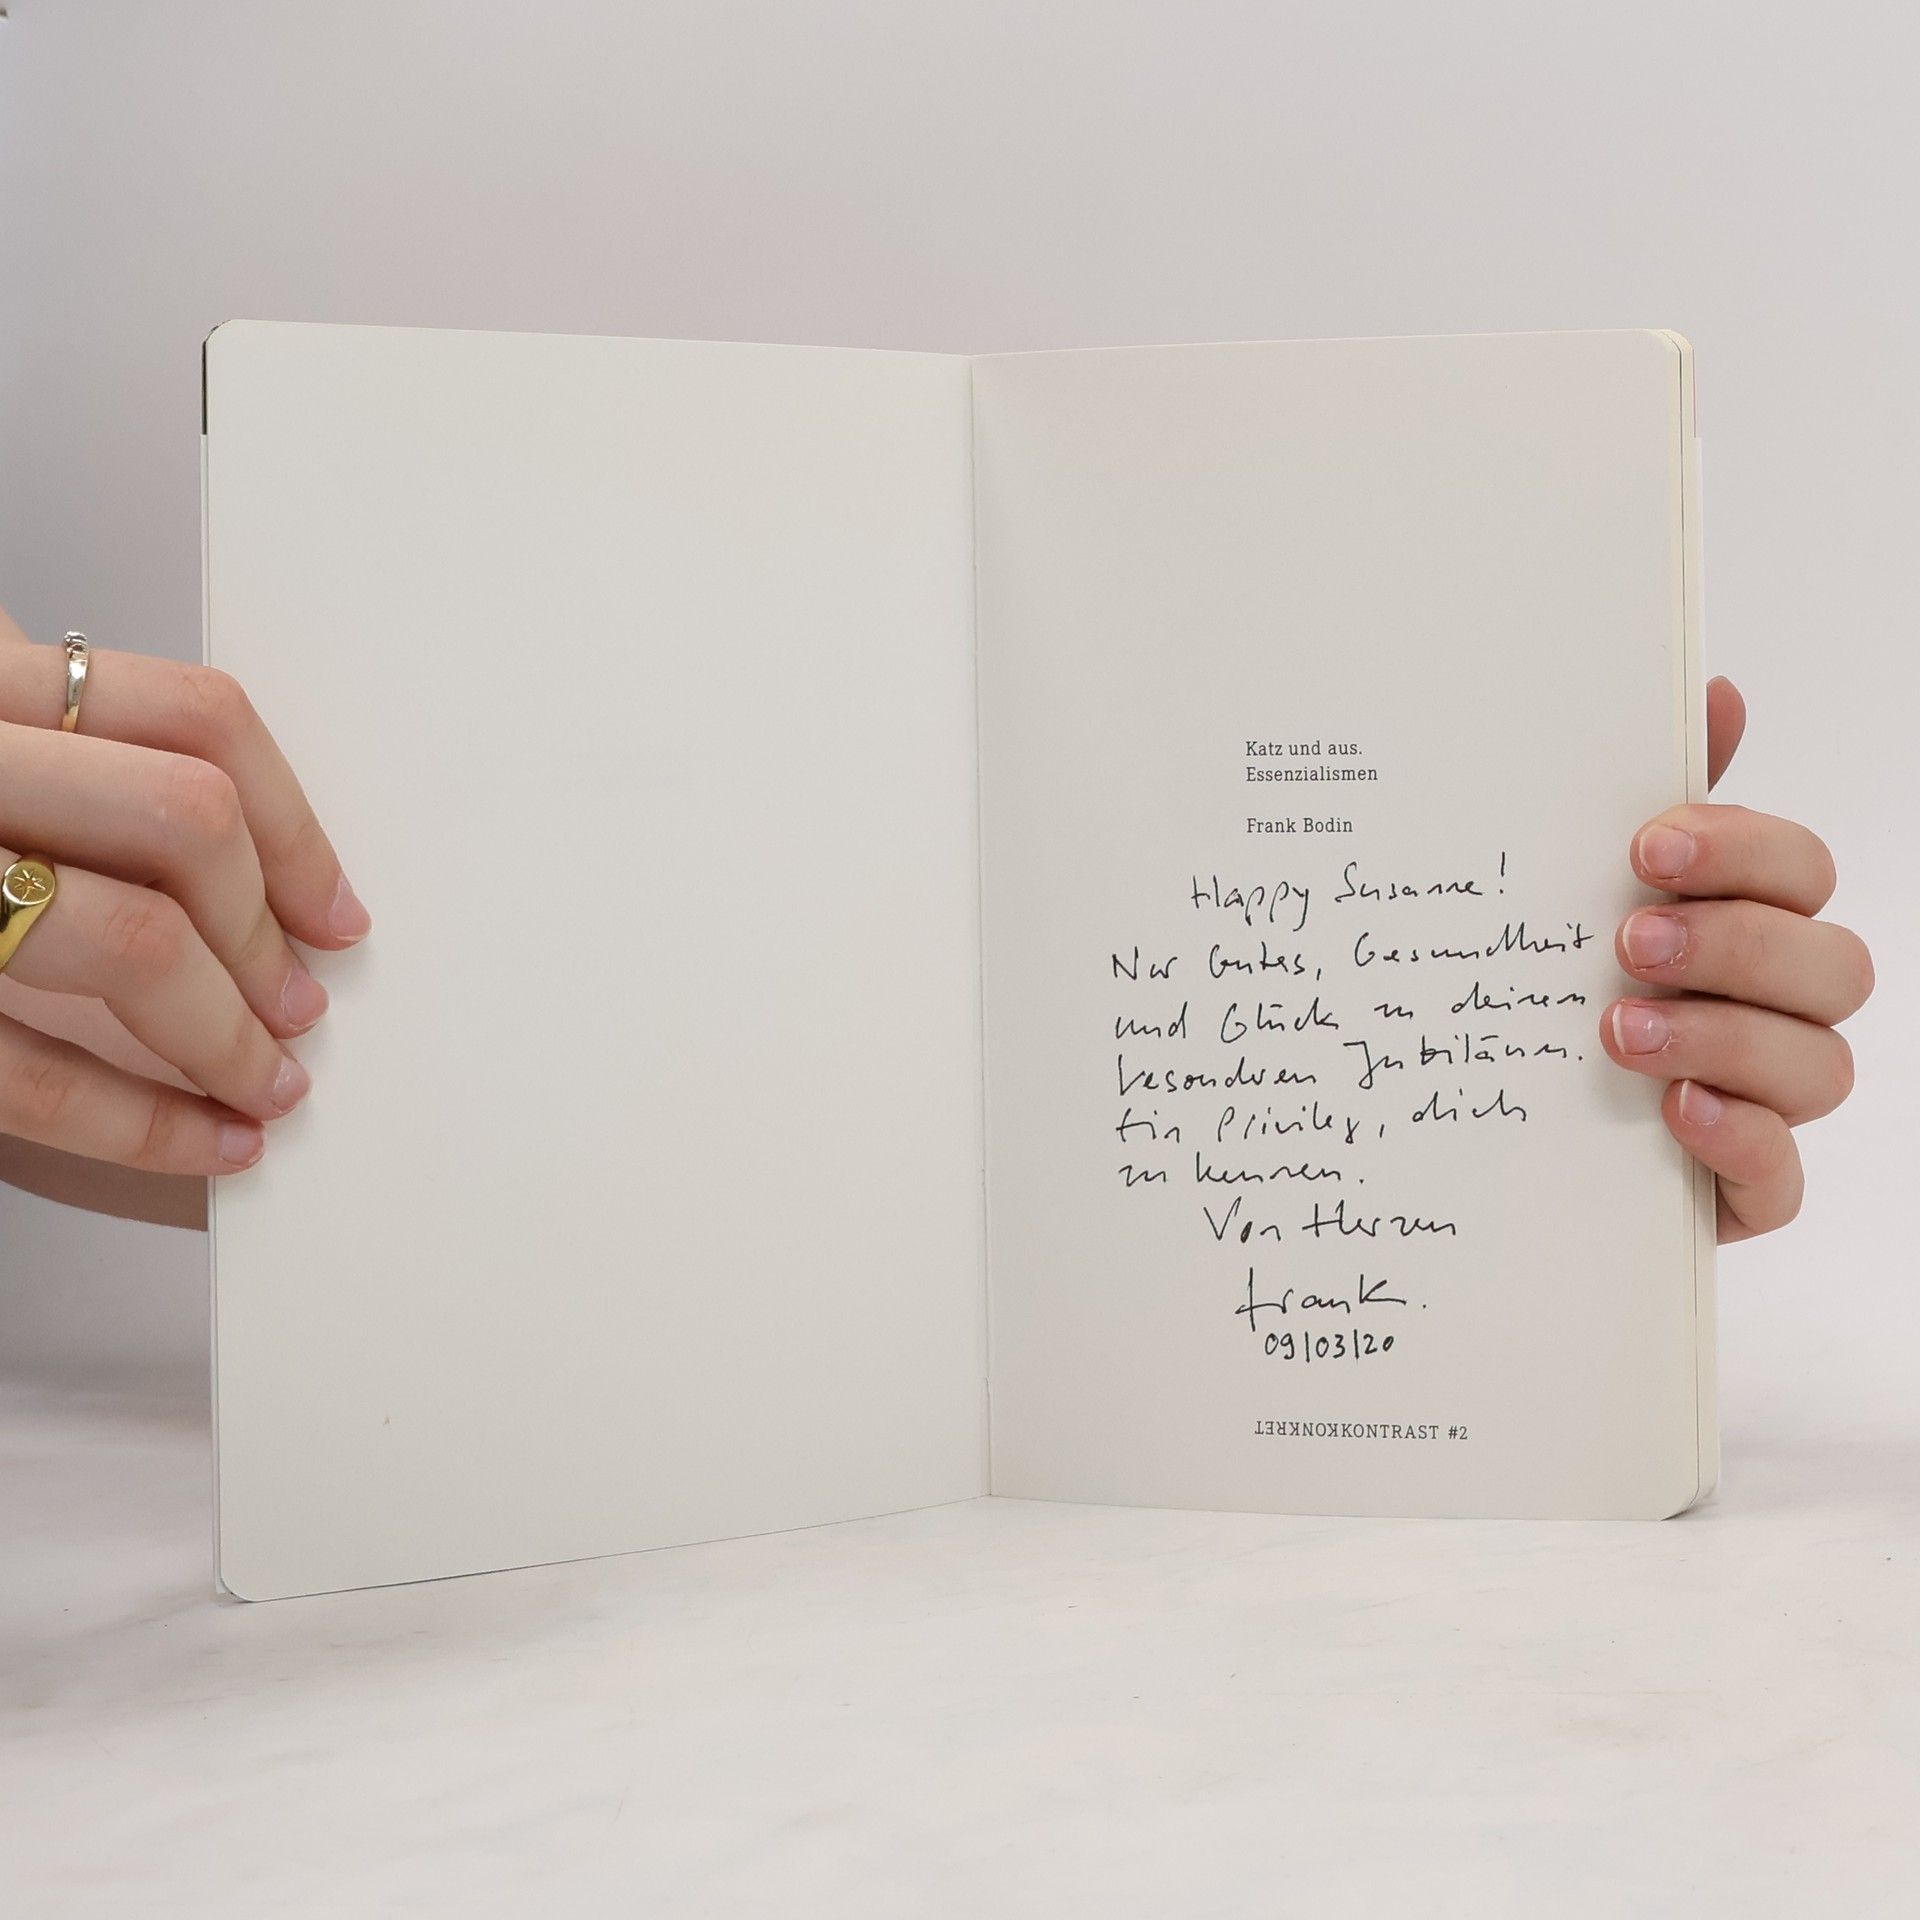 Katz und aus.
Essenzialismen
Frank Bodin
Happy Susanne!
Nur Gutes, Gesundheit
und Glück zu deinem
besonderen Jubiläum.
Ein Privileg, dich
zu kennen.
Von Herzen
Frank.
09/03/20
KONKRETKONTRAST #2